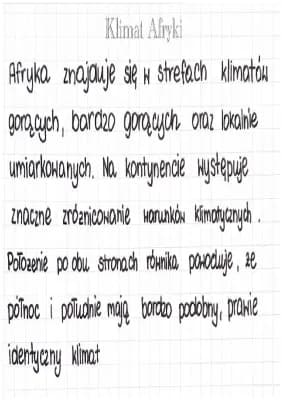 Klimat Afryki
Afryka znajduje się w strefach klimatów
gorących, bardzo gorących oraz lokalnie
umiarkowanych. Na kontynencie występuje
znaczne zróżnicowanie warunków klimatycznych.
Położenie po obu stronach równika powoduje, że
północ i południe mają bardzo podobny, prawie
identyczny klimat